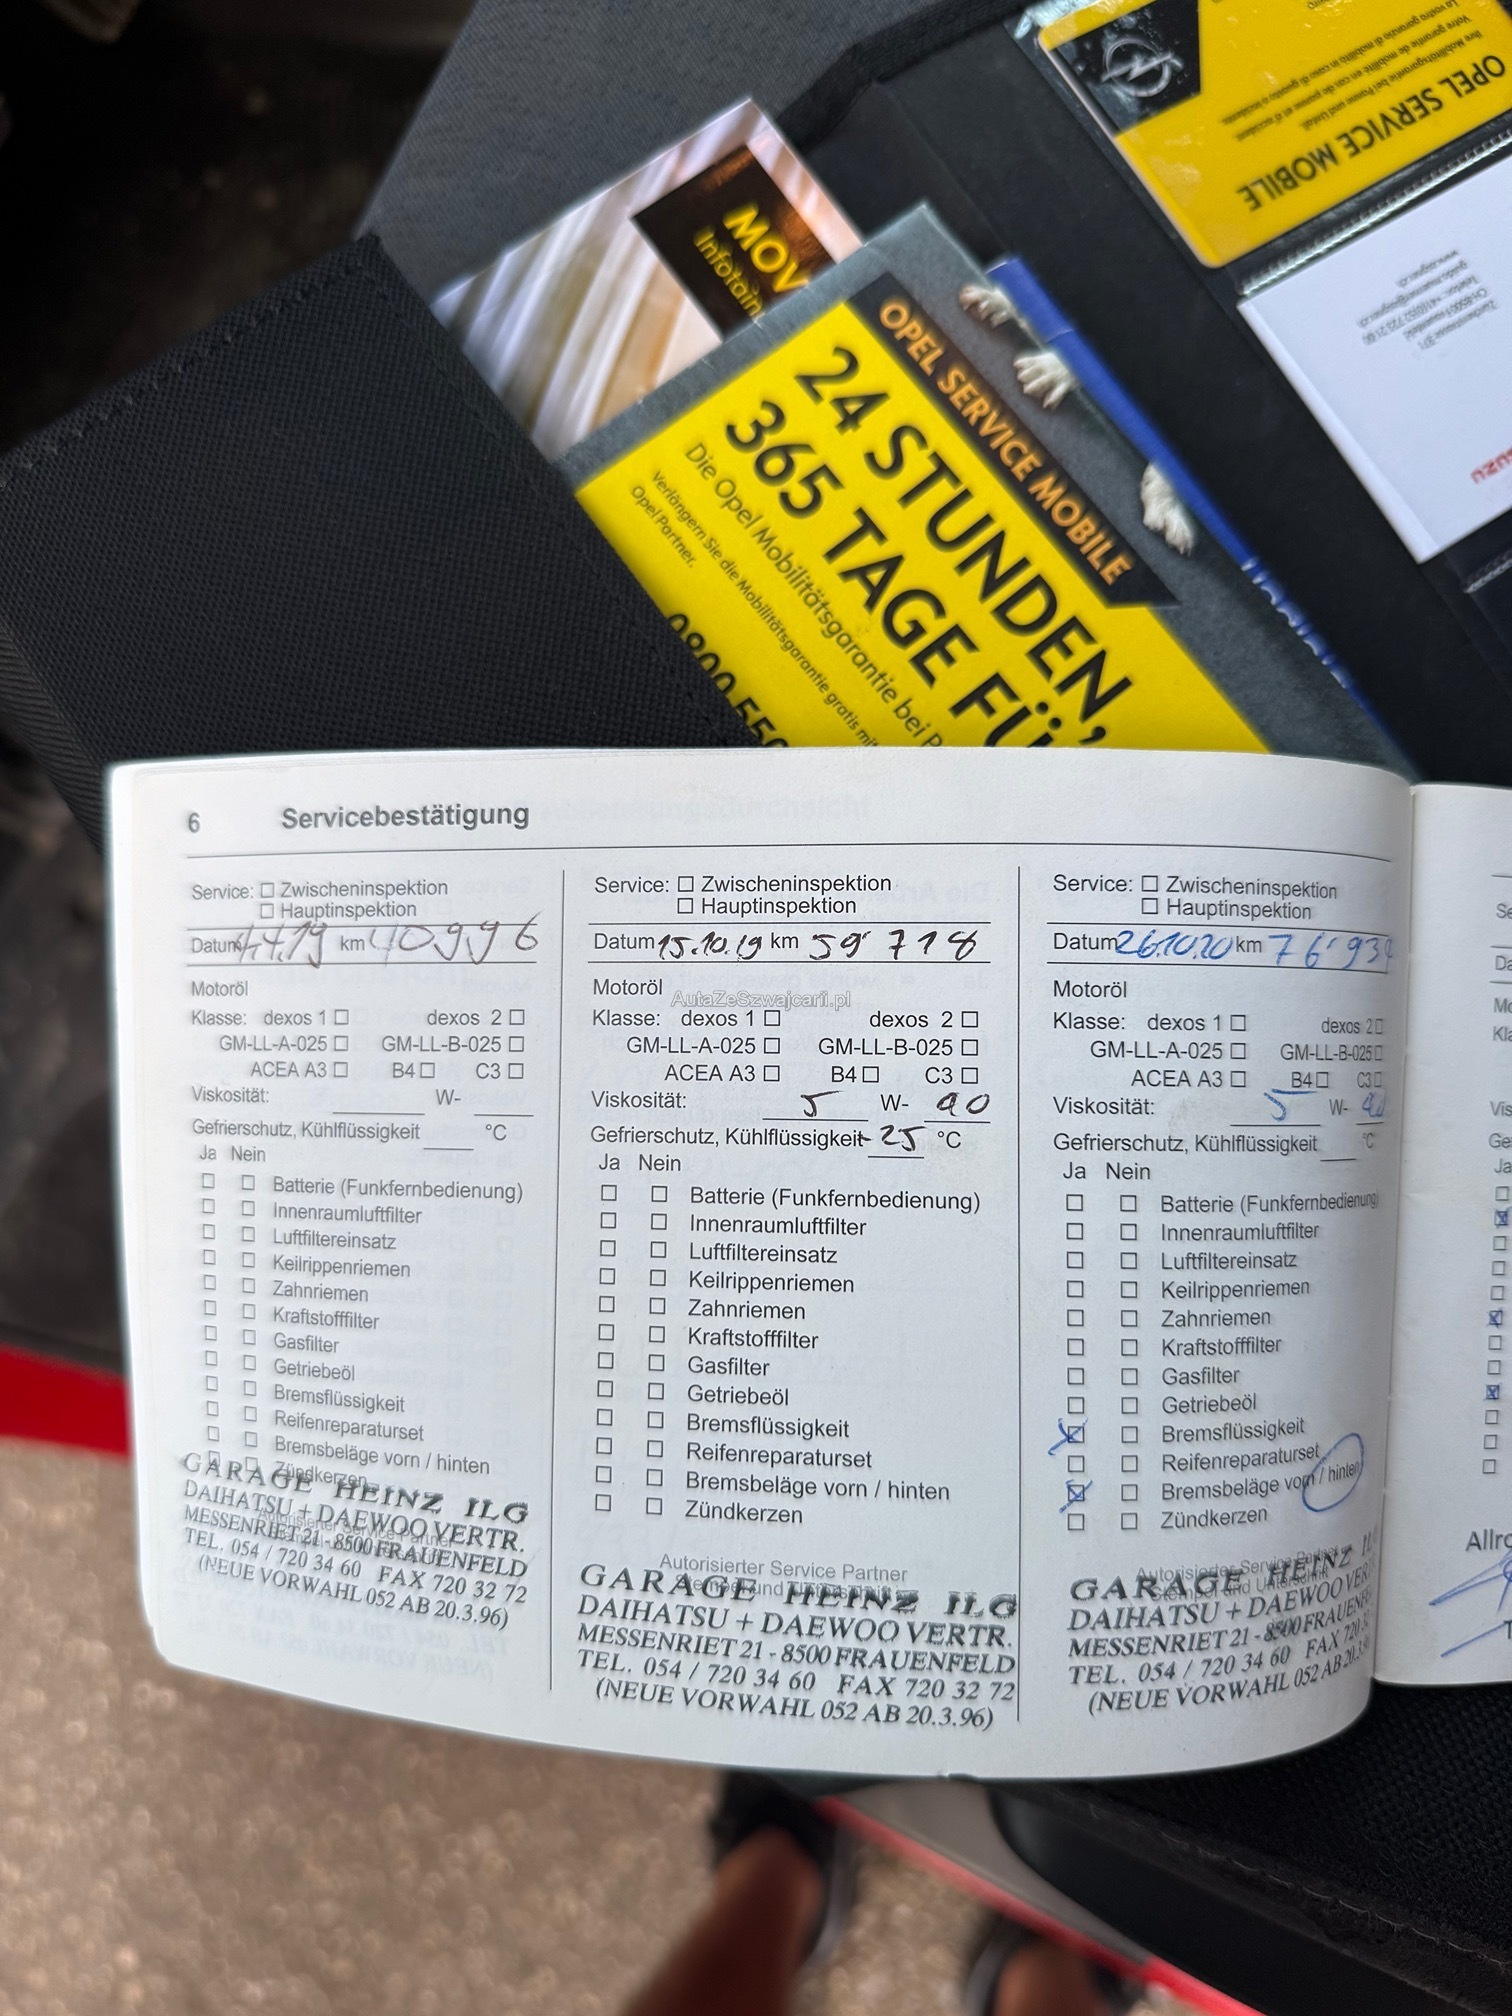 OPEL SERVICE MOBILE
Ihre Mobilitätsgarantie bei Panne und Unfall.
Votre garantie de mobilité en cas de panne et d'accident.
MOV
Infotain
OPEL SERVICE MOBILE
24 STUNDEN,
365 TAGE FÜ
Die Opel Mobilitätsgarantie bei
Verlängern Sie die Mobilitätsgarantie gratis mit
Opel Partner.
0800 550
6 Servicebestätigung
Service: Zwischeninspektion
Hauptinspektion
Datum 4.4.19 km 40996
Motoröl
Klasse: dexos 1 dexos 2
GM-LL-A-025 GM-LL-B-025
ACEA A3 B4 C3
Viskosität: W-
Gefrierschutz, Kühlflüssigkeit °C
Ja Nein
Batterie (Funkfernbedienung)
Innenraumluftfilter
Luftfiltereinsatz
Keilrippenriemen
Zahnriemen
Kraftstofffilter
Gasfilter
Getriebeöl
Bremsflüssigkeit
Reifenreparaturset
Bremsbeläge vorn / hinten
Zündkerzen
GARAGE HEINZ ILG
DAIHATSU + DAEWOO VERTR.
MESSENRIET 21 - 8500 FRAUENFELD
TEL. 054 / 720 34 60 FAX 720 32 72
(NEUE VORWAHL 052 AB 20.3.96)
Service: Zwischeninspektion
Hauptinspektion
Datum 15.10.19 km 59'718
Motoröl
AutaZeSzwajcarii.pl
Klasse: dexos 1 dexos 2
GM-LL-A-025 GM-LL-B-025
ACEA A3 B4 C3
Viskosität: 5 W- 40
Gefrierschutz, Kühlflüssigkeit -25 °C
Ja Nein
Batterie (Funkfernbedienung)
Innenraumluftfilter
Luftfiltereinsatz
Keilrippenriemen
Zahnriemen
Kraftstofffilter
Gasfilter
Getriebeöl
Bremsflüssigkeit
Reifenreparaturset
Bremsbeläge vorn / hinten
Zündkerzen
Autorisierter Service Partner
GARAGE HEINZ ILG
DAIHATSU + DAEWOO VERTR.
MESSENRIET 21 - 8500 FRAUENFELD
TEL. 054 / 720 34 60 FAX 720 32 72
(NEUE VORWAHL 052 AB 20.3.96)
Service: Zwischeninspektion
Hauptinspektion
Datum 26.10.20 km 76'934
Motoröl
Klasse: dexos 1 dexos 2
GM-LL-A-025 GM-LL-B-025
ACEA A3 B4 C3
Viskosität: 5 W- 40
Gefrierschutz, Kühlflüssigkeit °C
Ja Nein
Batterie (Funkfernbedienung)
Innenraumluftfilter
Luftfiltereinsatz
Keilrippenriemen
Zahnriemen
Kraftstofffilter
Gasfilter
Getriebeöl
Bremsflüssigkeit
Reifenreparaturset
Bremsbeläge vorn / hinten
Zündkerzen
GARAGE HEINZ
DAIHATSU + DAEWOO VER
MESSENRIET 21 - 8500 FRAUENFE
TEL. 054 / 720 34 60 FAX 720
(NEUE VORWAHL 052 AB 20.3.
Allro